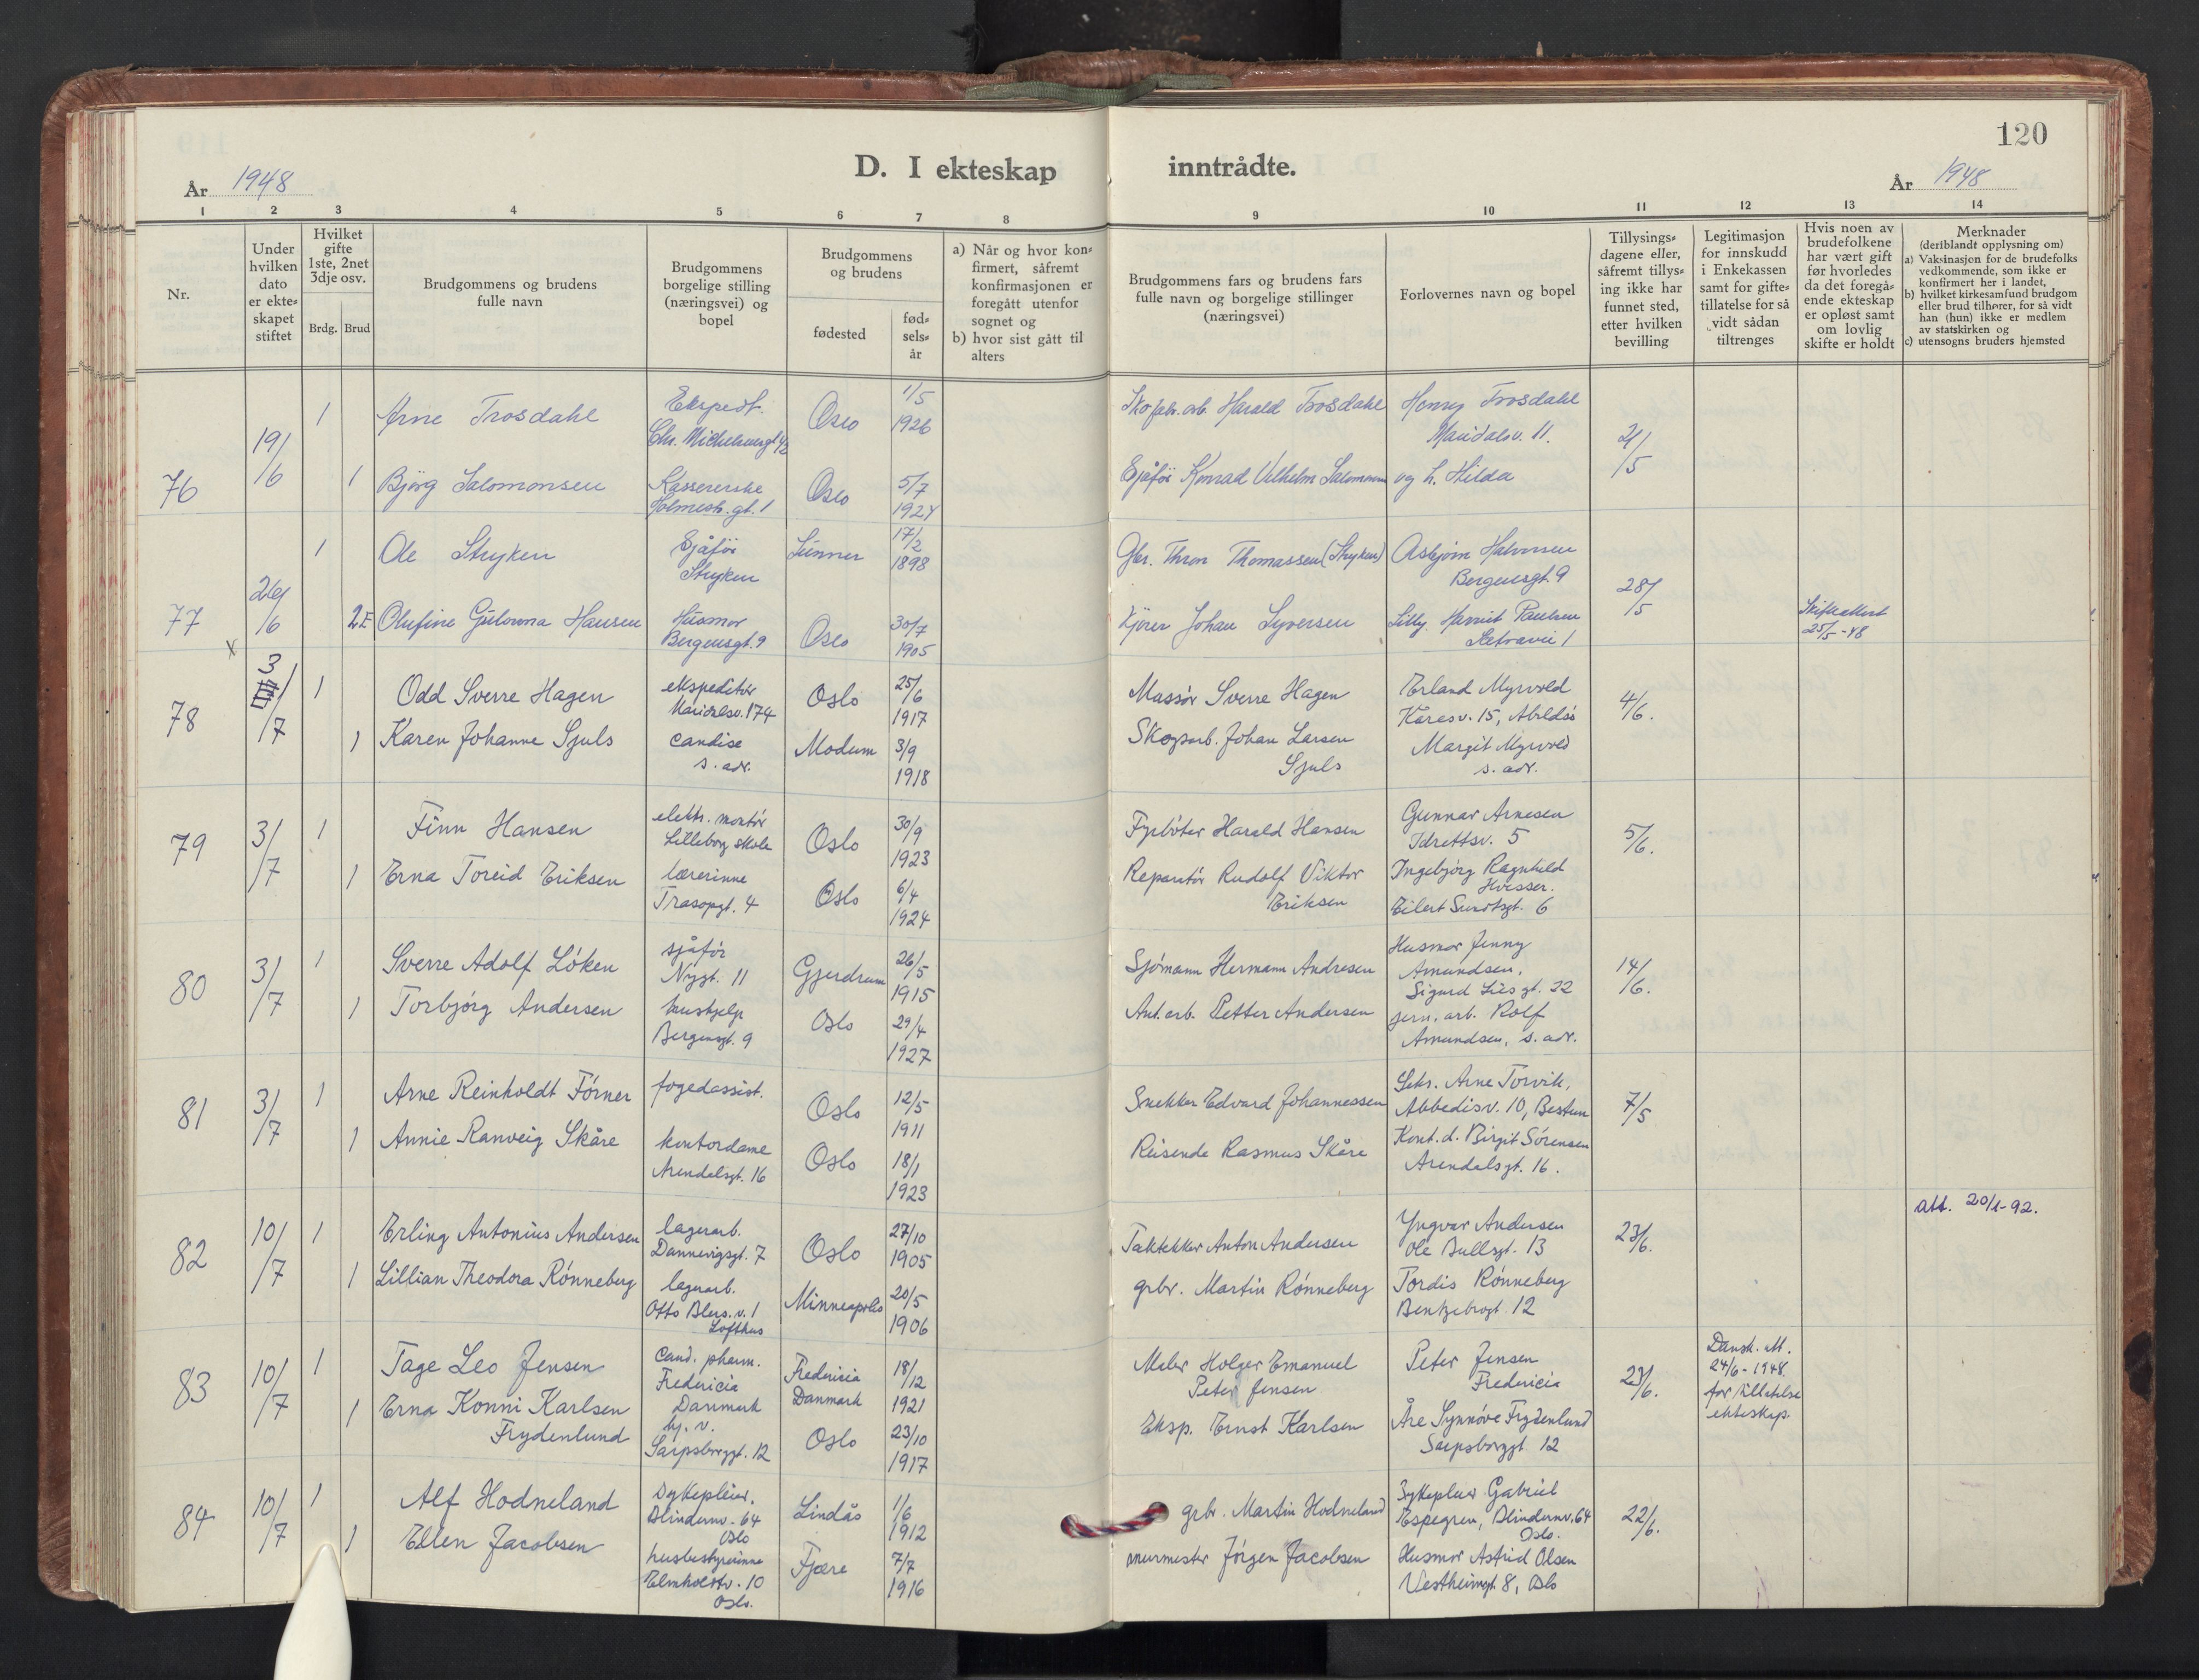 120
D. I ekteskap inntrådte.
År 1948
År 1948
1 2 3 4 5 6 7 8 9 10 11 12 13 14
Nr.
Under
hvilken
dato
er ekte=
skapet
stiftet
Hvilket
gifte
1ste, 2net
3dje osv.
Brdg. Brud
Brudgommens og brudens
fulle navn
Brudgommens
borgelige stilling
(næringsvei) og
bopel
Brudgommens
og brudens
fødested
fød=
sels=
år
a) Når og hvor kon=
firmert, såfremt
konfirmasjonen er
foregått utenfor
sognet og
b) hvor sist gått til
alters
Brudgommens fars og brudens fars
fulle navn og borgelige stillinger
(næringsvei)
Forlovernes navn og bopel
Tillysings=
dagene eller,
såfremt tillys=
ing ikke har
funnet sted,
etter hvilken
bevilling
Legitimasjon
for innskudd
i Enkekassen
samt for gifte=
tillatelse for så
vidt sådan
tiltrenges
Hvis noen av
brudefolkene
har vært gift
før hvorledes
da det foregå=
ende ekteskap
er opløst samt
om lovlig
skifte er holdt
Merknader
(deriblandt opplysning om)
a) Vaksinasjon for de brudefolks
vedkommende, som ikke er
konfirmert her i landet,
b) hvilket kirkesamfund brudgom
eller brud tilhører, for så vidt
han (hun) ikke er medlem
av statskirken og
c) utensogns bruders hjemsted
76 19/6
1 Arne Trosdahl
Ekspedt.
Oslo
1/5
1926
Skofabr.arb. Harald Trosdahl
Henry Trosdahl
Maridalsv. 11.
21/5
1 Bjørg Salomonsen
Kassererske
Holmestr.gt. 1
Oslo
5/7
1927
Sjåfør Konrad Vilhelm Salomonsen
og h. Hilda
77 26/6
1 Ole Stryken
Sjåfør
Stryken
Lunner
17/2
1898
Gbr. Thron Thomassen (Stryken)
Asbjørn Halvorsen
Bergensgt. 9
28/5
2E Olufine Gulowna Hansen
Husmor
Bergensgt. 9
Oslo
30/7
1905
Kjører Johan Syversen
Lilly Harriet Paulsen
Skifteattest
25/5-48
x
78 3/7
1 Odd Sverre Hagen
ekspeditør
Maridalsv. 174
Oslo
25/6
1917
Massør Sverre Hagen
Erland Myrvold
Kåresv. 15, Abildsø
4/6.
1 Karen Johanne Sjuls
s. adr.
Modum
3/9
1918
Skogsarb. Johan Larsen
Sjuls
Margit Myrvold
s. adr.
79 3/7
1 Finn Hansen
elektr. montør
Lilleborg skole
Oslo
30/9
1923
Fyrbøter Harald Hansen
Gunnar Arnesen
Idrettsv. 5
5/6.
1 Erna Toreid Eriksen
lærerinne
Trasopgt. 4
Oslo
6/4
1924
Reparatør Rudolf Viktor
Eriksen
Ingebjørg Ragnhild
Eilert Sundtsgt. 6
80 3/7
1 Sverre Adolf Løken
sjåfør
Nygt. 11
Gjerdrum
26/5
1915
Sjømann Hermann Andresen
Husmor Jenny
Amundsen,
Sigurd Liesgt. 22
14/6.
1 Torbjørg Andersen
hushjelp
Bergensgt. 9
Oslo
29/4
1927
Anl.arb. Petter Andersen
jern.arb. Rolf
Amundsen, s. adr.
81 3/7
1 Arne Reinholdt Førner
fogedassist.
Oslo
12/5
1911
Snekker Edvard Johannessen
Sekr. Arne Torvik,
Abbedisv. 10, Bestun
7/5
1 Annie Ranveig Skåre
kontordame
Arendalsgt. 16
Oslo
18/1
1923
Reisende Rasmus Skåre
Kont.d. Birgit Sørensen
Arendalsgt. 16.
82 10/7
1 Erling Antonius Andersen
lagerarb.
Dannevigsgt. 7
Oslo
27/10
1905
Taktekker Anton Andersen
Yngvar Andersen
Ole Bullsgt. 13
23/6.
att. 20/1-92.
1 Lillian Theodora Rønneberg
lagerarb.
Otto Blers. v. 1
Lofthus
Minneapolis
20/5
1906
grbr. Martin Rønneberg
Tordis Rønneberg
Bentzebrogt. 12
83 10/7
1 Tage Leo Jensen
Cand. pharm.
Fredericia
Danmark
Fredericia
Danmark
18/12
1921
Maler Holger Emanuel
Peter Jensen
Peter Jensen
Fredericia
23/6.
Dansk. att.
24/6-1948
for tillatelse
ekteskap.
1 Erna Konni Karlsen
Frydenlund
hj. v.
Sarpsborggt. 12
Oslo
23/10
1917
Eksp. Ernst Karlsen
Åre Synnøve Frydenlund
Sarpsborggt 12
84 10/7
1 Alf Hodneland
Sykepleier,
Blindernv. 64
Oslo
Lindås
1/6
1912
grbr. Martin Hodneland
Sykepleier Gabriel
Espegren, Blindernv. 64
Oslo.
22/6.
1 Ellen Jacobsen
husbestyrerinne
Elmholtv. 10
Oslo.
Fjære
7/7
1916
murmester Jørgen Jacobsen
Husmor Astrid Olsen
Vestheimgt. 8, Oslo